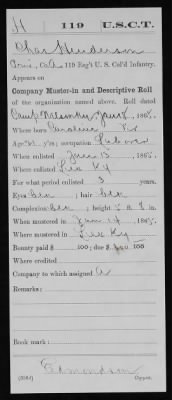 H | 119 | U.S.C.T.
Chas Henderson
Priv., Co. A 119 Reg't U. S. Col'd Infantry.
Appears on
Company Muster-in and Descriptive Roll
of the organization named above. Roll dated
Camp Nelson Ky, 186
Where born Caroline
Age y'rs; occupation Laborer
When enlisted 13, 186
Where enlisted Lex Ky
For what period enlisted 3 years.
Eyes blk; hair blk
Complexion blk; height ft. in.
When mustered in June 14, 186
Where mustered in Lex Ky
Bounty paid $ 100; due $ 100
Where credited
Company to which assigned A
Remarks:
Book mark:
Edmondson
Copyist.